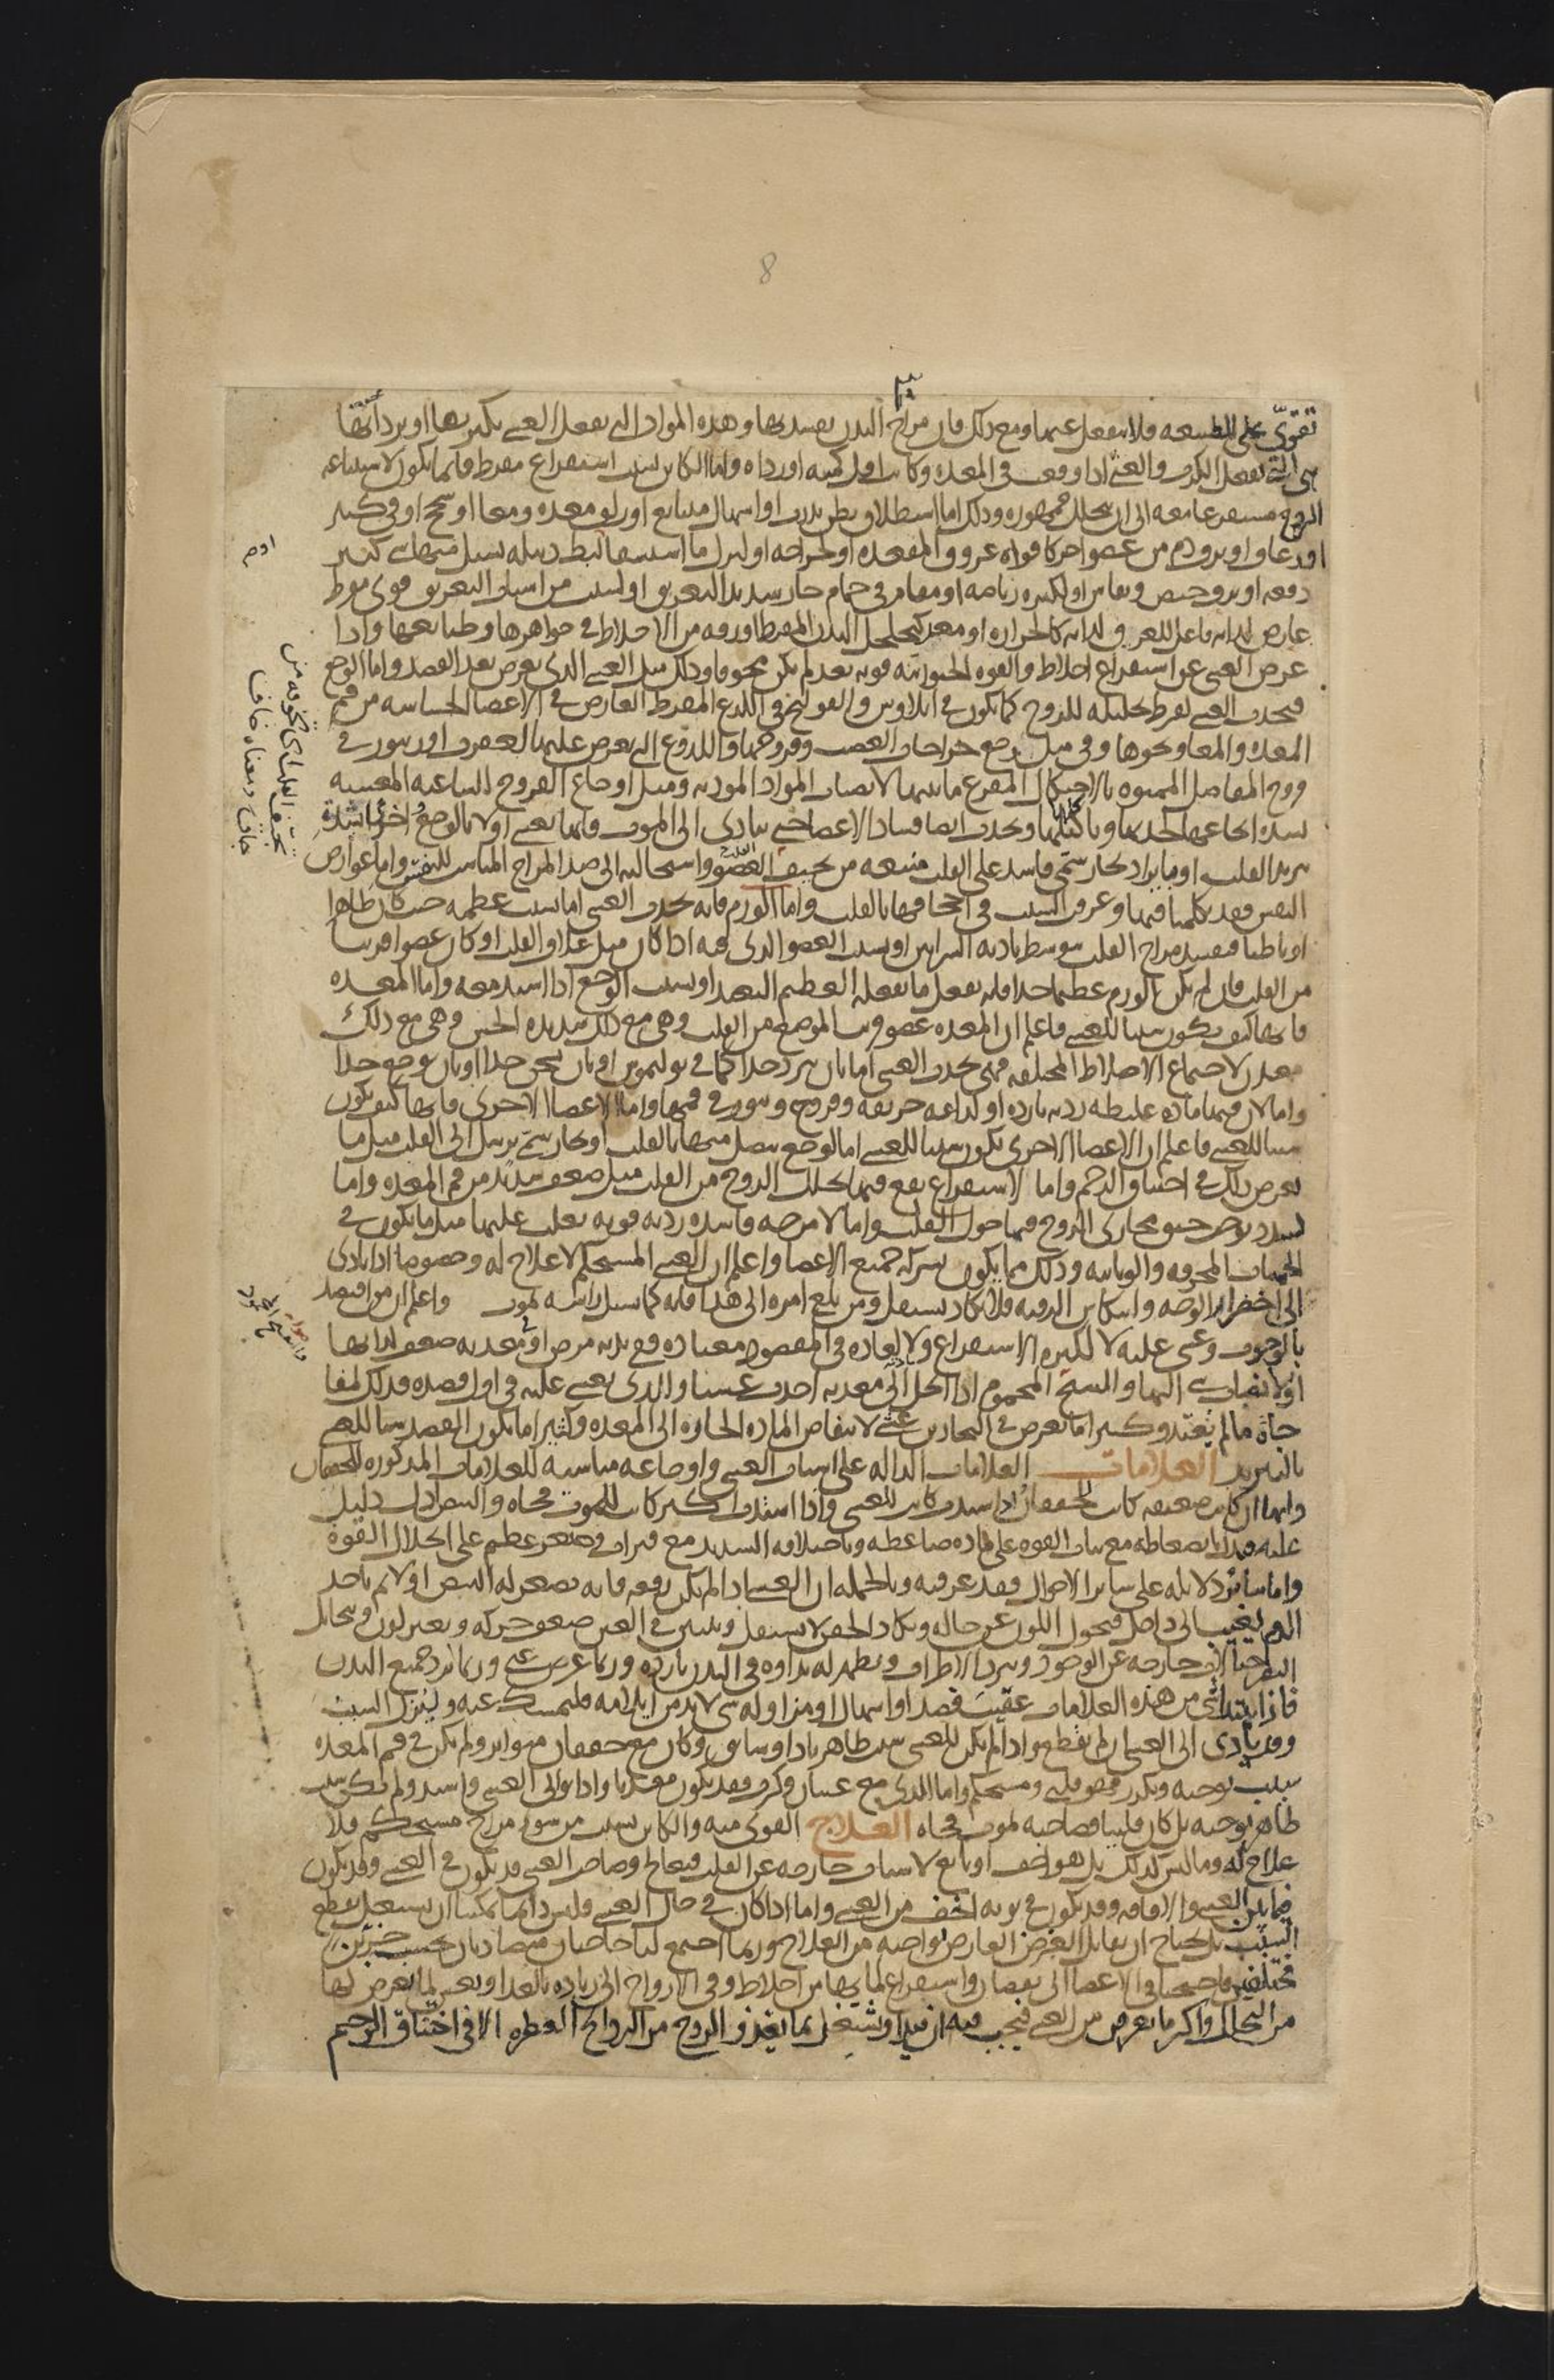 8
تقوى على الطبيعه فلا ينفعل عنها ومع ذلك فان مزاج البدن يفسد بها وهذه المواد التى تفعل الغشى بكثرتها او برداءتها
هى التى تفعل الكرب والغشى اذا وقعت فى المعده وكانت قليله اورداه واما الكائن بسبب استفراغ مفرط فانما يكون لاستتباعه
الروح مستفرغا معه الى ان يتحلل جمهوره وذلك اما استطلاق بطن بذرب او اسهال متتابع او زلق معده ومعا او سحج او قى كثير
او رعاف او نزف دم من عضو اخر كافواه عروق المقعده او لجراحه او لبزل ما استسقا او لبط دبيله يسيل منها شى كثير
دفعه او نزف حيض ونفاس او لكثره رياضه او مقام فى حمام حار شديد التعريق او لسبب من اسباب التعريق قوى مفرط
عارض لذاته فاعل للعرق لذاته كالحراره او معد كتخلخل البدن المفرط او رقه من الاخلاط فى جواهرها وطبائعها واذا
عرض الغشى عن استفراغ اخلاط والقوه الحيوانيه قويه بعد لم يكن مخوفا وذلك مثل الغشى الذى يعرض بعد الفصد واما الوجع
فيحدث الغشى لفرط تحليله للروح كما يكون فى ايلاوس والقولنج وفى اللذع المفرط العارض فى الاعضا الحساسه من فم
المعده والمعا ونحوها وفى مثل وجع جراحات العصب وقروحها واللذوع التى تعرض عليها لعقرب او زنبور وفى
قروح المفاصل الممنوه بالاحتكاك المفرغ ما بينها لانصباب المواد الموذيه ومثل اوجاع القروح الساعيه المغشيه
لشده ايجاعها لحدتها وتاكلها وتحدث ايضا فساد الاعضا حتى يتادى الى الموت فانها تغشى اولا بالوجع اخرا بشده
تبريد القلب او بايراد بخار سمى فاسد على القلب منبعه من تجيف العضو واستحالته الى ضد المزاج المناسب للنفس واما عوارض
النفس فقد تكلمنا فيها وعرفت السبب فى اجحافها بالقلب واما الورم فانه يحدث الغشى اما بسبب عظمه حيث كان ظاهرا
او باطنا فيفسد مزاج القلب بتوسط تاديه الشرايين او بسبب العضو الذى فيه اذا كان مثل غلاف القلب او كان عضوا قريبا
من القلب فان لم يكن الورم عظيما جدا فانه يفعل ما يفعله العظيم البعيد او بسبب الوجع اذا اشتد معه واما المعده
فانها كيف يكون سببا للغشى فاعلم ان المعده عضو قريب الموضع من القلب وهى مع ذلك شديده الحس وهى مع ذلك
معدن لاجتماع الاخلاط المختلفه فهى يحدث الغشى اما بان تبرد جدا كما فى بوليموس او بان تسخن جدا او بان توجع جدا
واما لان فيها ماده غليظه رديه بارده او لذاعه حريفه وقروح وبثور فى فمها واما الاعضا الاخرى فانها كيف يكون
سببا للغشى فاعلم ان الاعضا الاخرى يكون سببا للغشى اما لوجع يتصل منها بالقلب او بخار سمى يرسل الى القلب مثل ما
يعرض ذلك فى اختناق الرحم واما لاستفراغ يقع فيها يحلل الروح من القلب مثل ضعف شديد من فم المعده واما
لسدد توجب خنق مجارى الروح فيما حول القلب واما لامزجه فاسده رديه قويه تغلب عليها مثل ما يكون فى
الحميات المحرقه والوبائيه وذلك مما يكون بشركه جميع الاعضا واعلم ان الغشى المستحكم لا علاج له وخصوصا اذا تادى
الى اخضرار الوجه وانتكاس الرقبه فلا يكاد يستقل ومن بلغ امره الى هذا فانه كما يشيل راسه يموت واعلم ان من افتصد
بالوجوب وغشى عليه لا لكثره الاستفراغ ولا لعاده فى المفصود معتاده ففى بدنه مرض او فى معدته ضعف لذاتها
او لانصباب شى اليها والشيخ المحموم اذا انحل الى معدته احدث غشيا والذى يغشى عليه فى اول فصده فذلك لمفا
جاه ما لم يعتد وكثيرا ما يعرض فى البحارين غشى لانتفاض الماده الحاره الى المعده وكثيرا ما يكون الفصد سببا للغشى
بالتبريد العلامات العلامات الداله على اسباب الغشى واوجاعه مناسبه للعلامات المذكوره للخفقان
وانها ان كانت ضعيفه كانت للخفقان اذا اشتدت كانت للغشى واذا اشتدت اكثر كانت للموت فجاه والنبض ادل دليل
عليه فيدل بانضغاطه مع ثبات القوه على ماده ضاغطه وباختلافه الشديد مع فترات وصغر عظيم على انحلال القوه
واما سائر دلائله على سائر الاحوال فقد عرفته وبالجمله ان الغشى اذا لم يكن دفعه فانه يصغر له النبض اولا ثم ياخذ
الدم يغيب الى داخل فيحول اللون عن حاله ويكاد الجفن لا يستقل ويتبين فى العين ضعف حركه وتغير لون ويتخايل
للبصر خيالات خارجه عن الوجود ويبرد الاطراف ويظهر له نداوه فى البدن بارده وربما عرض غشى وربما برد جميع البدن
فاذا ابتدا شى من هذه العلامات عقيب فصد او اسهال او مزاوله شى لابد من ايلامه فليمسك عنه وليزل السبب
وقد يادى الى الغشى ان لم يقطع واذا لم يكن للغشى سبب ظاهر باد او سابق وكان مع خفقان متواتر ولم يكن فى فم المعده
سبب يوجبه ويكرر فهو قلبى ومستحكم واما الذى مع غثيان وكرب فقد يكون معديا واذا توالى الغشى واشتد ولم يكن سبب
ظاهر يوجبه بل كان قلبيا فصاحبه يموت فجاه العلاج القوى منه والكائن بسبب من سوء مزاج مستحكم فلا
علاج له وما ليس كذلك بل هو اخف او تابع لاسباب خارجه عن القلب فيعالج وصاحب الغشى قد يكون فى الغشى وقد يكون
فيما بين الغشى والافاقه وقد يكون فى نوبه اخف من الغشى واما اذا كان فى حال الغشى فليس دائما يمكننا ان نستعجل بقطع
السبب بل نحتاج ان نقابل العرض العارض بواجبه من العلاج وربما اجتمع لنا حاجتان متضادتان بحسب جزئين
مختلفين فاحتجنا فى الاعضا الى نقصان واستفراغ لما بها من اخلاط وفى الارواح الى زياده بالغذا ونعش لما يعرض لها
من التحلل واكثر ما يعرض من الغشى فيجب فيه ان تبدا وتشتغل بما يغذو الروح من الروائح العطره الا فى اختناق الرحم